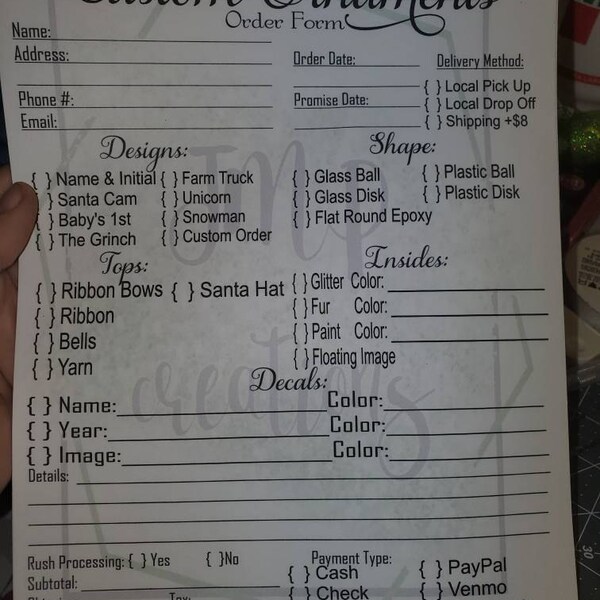 Custom Ornaments
Order Form
Name:
Address:
Phone #:
Email:
Order Date:
Promise Date:
Delivery Method:
{ } Local Pick Up
{ } Local Drop Off
{ } Shipping +$8
Designs:
{ } Name & Initial { } Farm Truck
} Santa Cam { } Unicorn
{ } Baby's 1st { } Snowman
{ } The Grinch { } Custom Order
Shape:
{ } Glass Ball { } Plastic Ball
{ } Glass Disk { } Plastic Disk
{ } Flat Round Epoxy
Tops:
{ } Ribbon Bows { } Santa Hat
{ } Ribbon
{ } Bells
{ } Yarn
Insides:
{ } Glitter Color:
{ } Fur Color:
{ } Paint Color:
{ } Floating Image
JNP
creations
Decals:
{ } Name: Color:
{ } Year: Color:
{ } Image: Color:
Details:
Rush Processing: { } Yes { } No
Subtotal:
Tax:
Payment Type:
{ } Cash { } PayPal
{ } Check { } Venmo
30